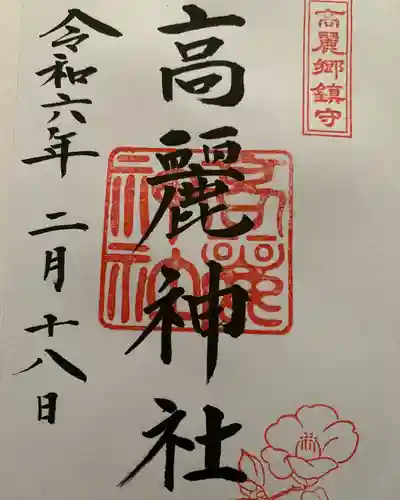 高麗郷鎮守
高麗神社
令和六年 二月 十八日
高麗神社